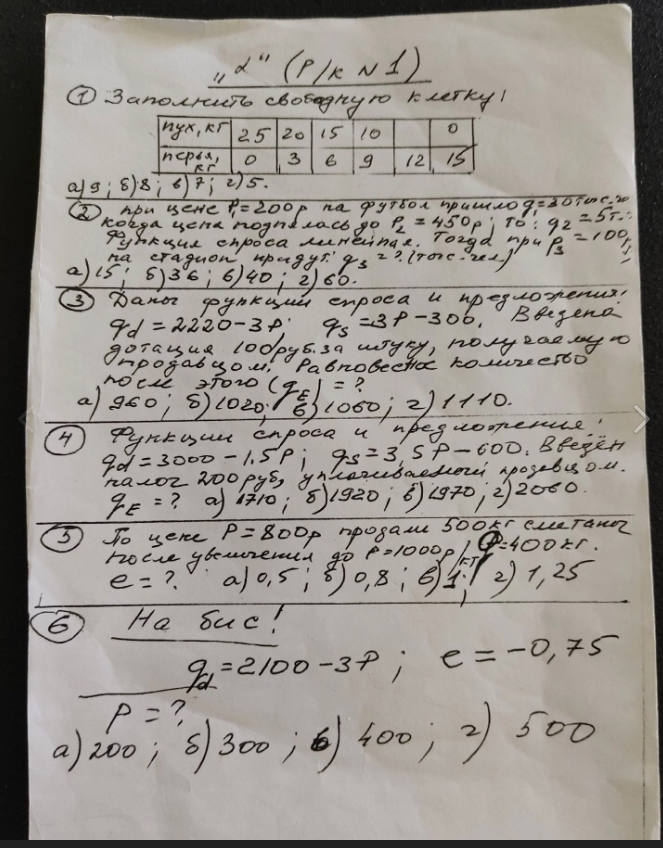 "α" (Р/к N1)
① Заполнить свободную клетку!
пух, кг 25 20 15 10 0
перья, кг 0 3 6 9 12 15
а) 9; б) 8; в) 7; г) 5.
② при цене P₁=200р на футбол пришло q₁=30 тыс.
когда цена поднялась до P₂=450р; то: q₂=5т.
Функция спроса линейная. Тогда при P₃=100р,
на стадион придут: q₃=? (тыс. чел)
а) 15; б) 36; в) 40; г) 60.
③ Даны функции спроса и предложения:
qd=2220-3P; qs=3P-300. Введена
дотация 100 руб. за штуку, получаемую
продавцом. Равновесное количество
после этого (qE)=?
а) 960; б) 1020; в) 1060; г) 1110.
④ Функции спроса и предложения:
qd=3000-1,5P; qs=3,5P-600. Введён
налог 200 руб, уплачиваемый продавцом.
qE=? а) 1710; б) 1920; в) 1970; г) 2060.
⑤ По цене P=800р продали 500кг сметаны
после увеличения до P=1000р, Q=400кг.
e=? а) 0,5; б) 0,8; в) 1; г) 1,25
⑥ На бис!
qd=2100-3P; e=-0,75
P=?
а) 200; б) 300; в) 400; г) 500